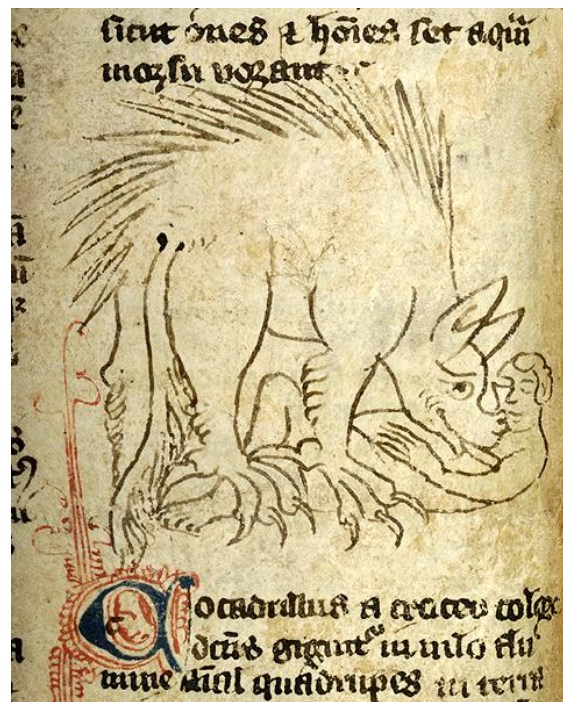 sicut oues ⁊ hōies set
morsu vorant
Cocadrillus a croceo
dc̄us gignit᷑ in nilo flu
mine āīal quadrupes in terra